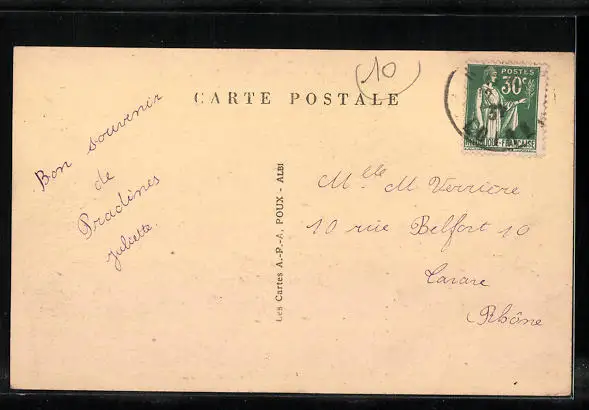 10
CARTE POSTALE
POSTES
30c
RÉPUBLIQUE-FRANÇAISE
Bon souvenir
de
Pradines
Juliette.
Les Cartes A.-P.-A. POUX - ALBI
Mlle M Verrière
10 rue Belfort 10
Tarare
Rhône